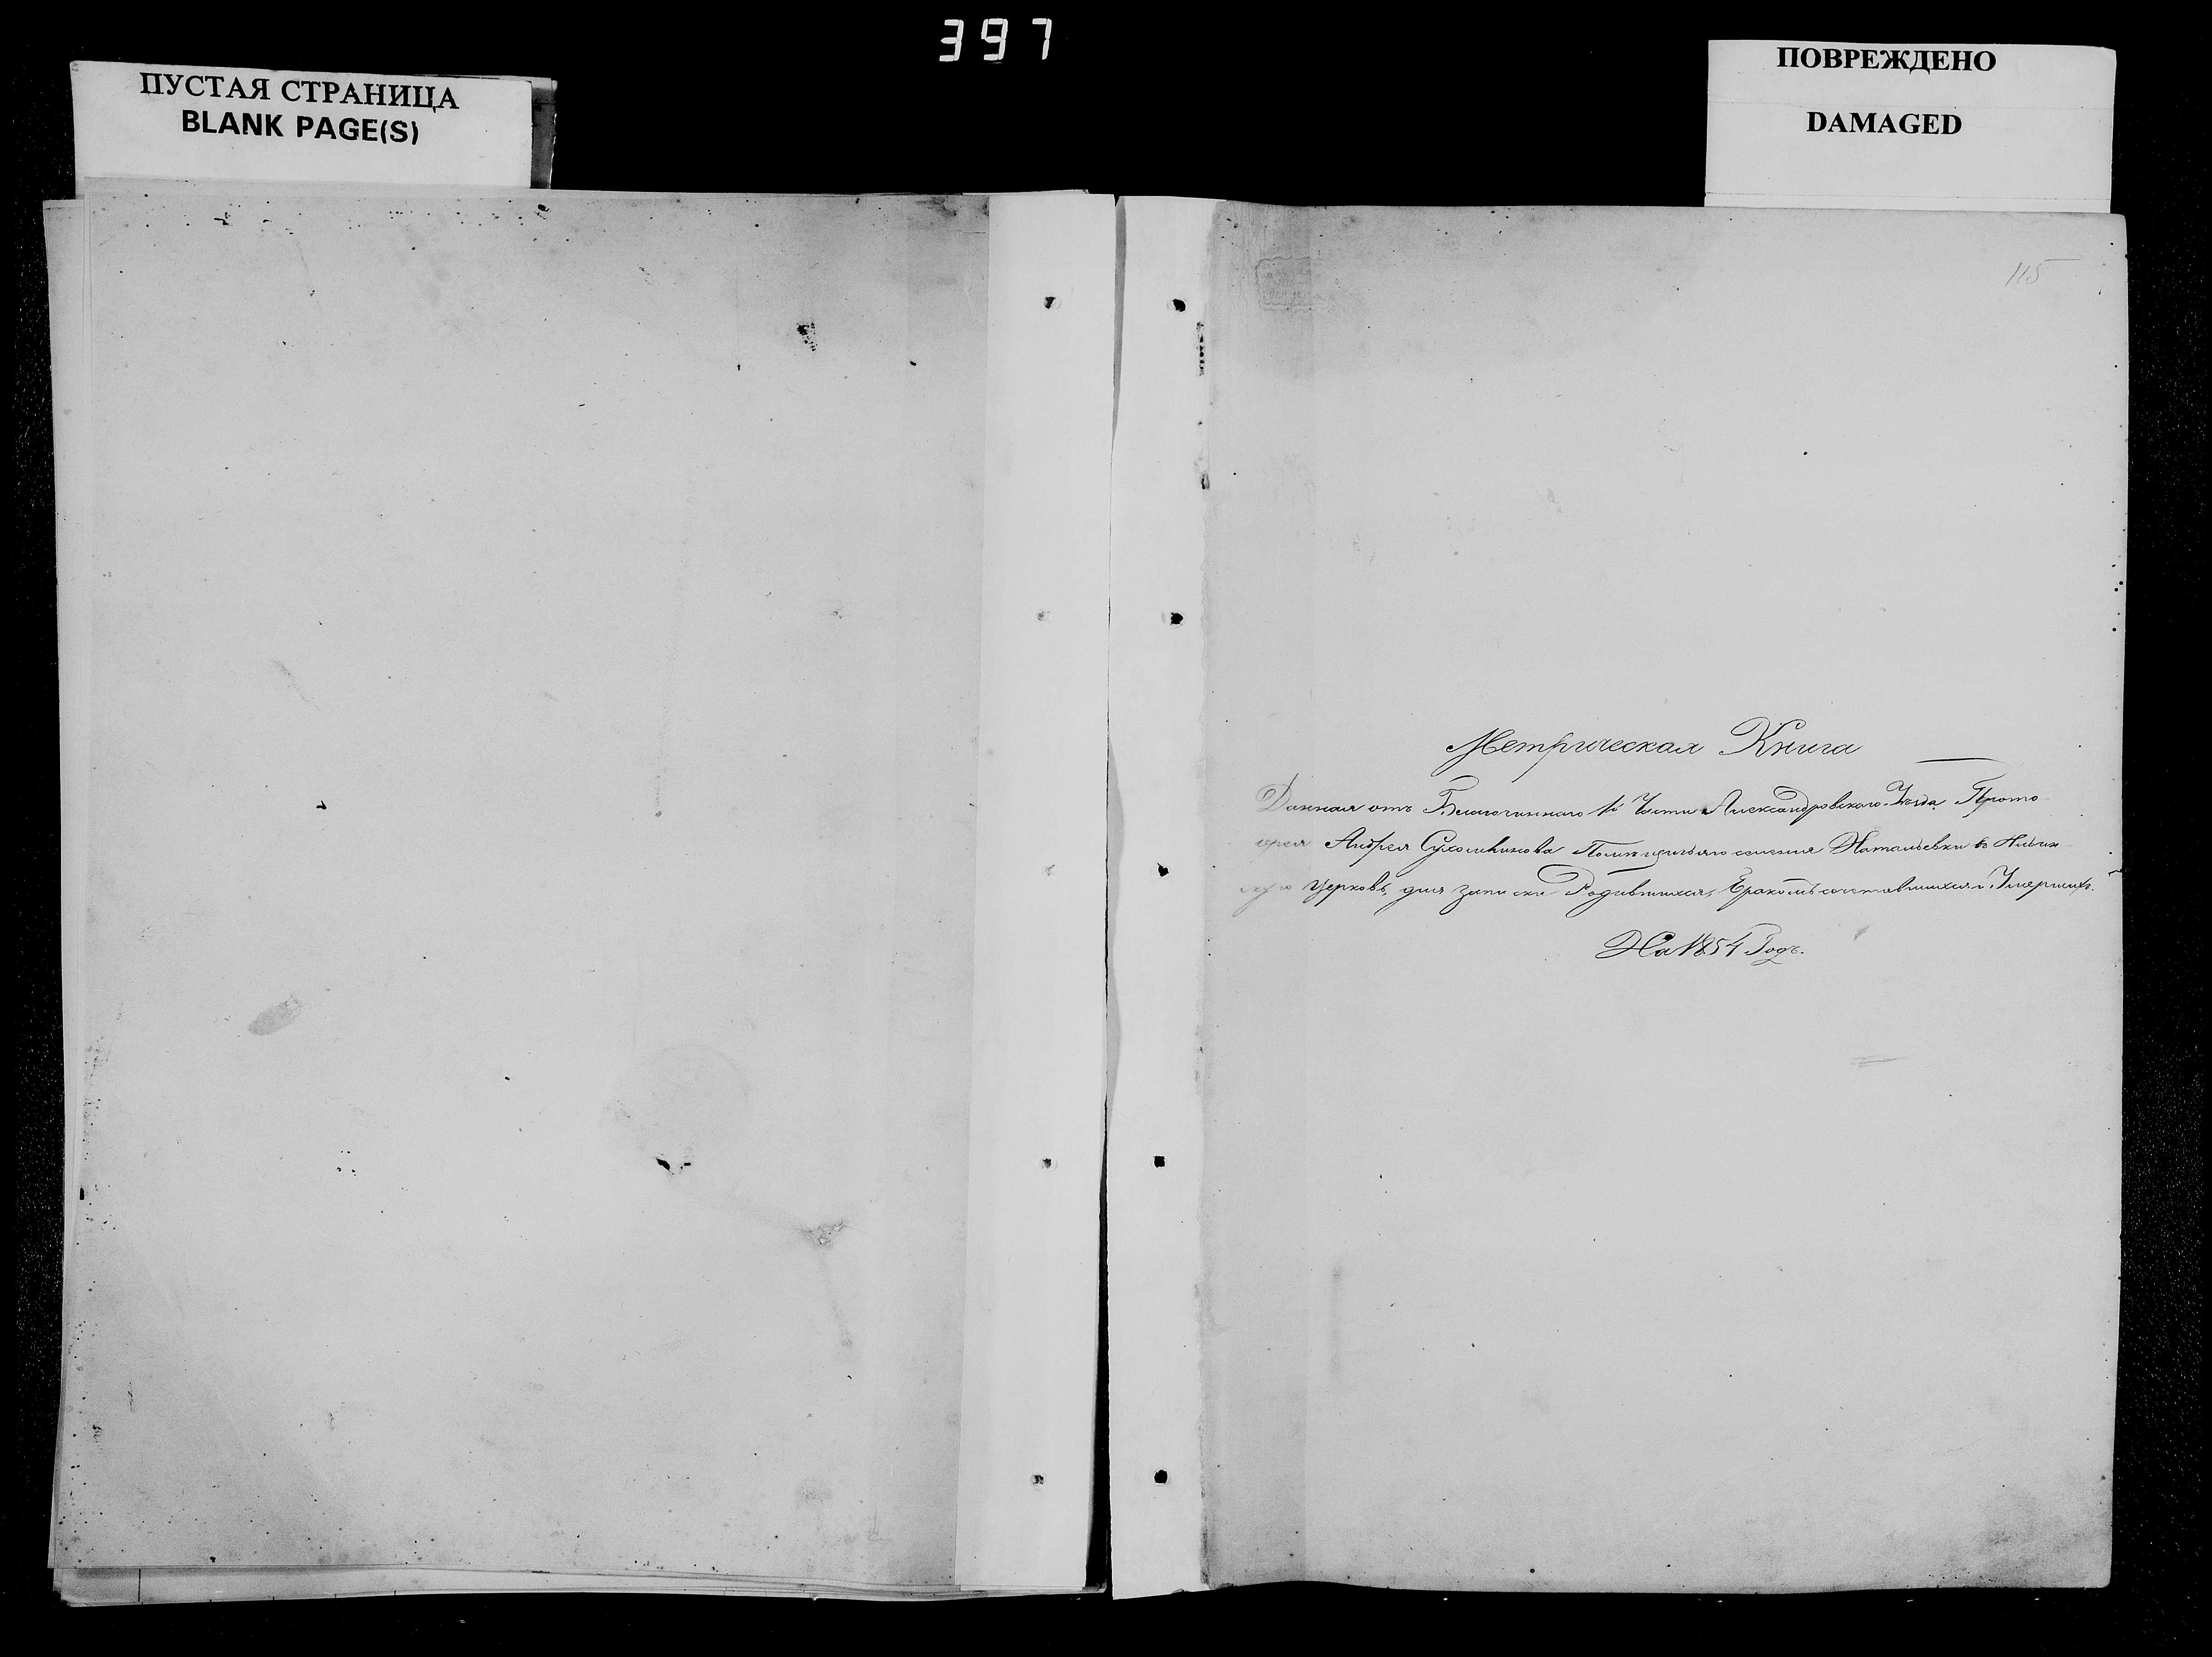 397
ПУСТАЯ СТРАНИЦА
BLANK PAGE(S)
ПОВРЕЖДЕНО
DAMAGED
115
Метрическая Книга
Данная отъ Благочиннаго Части Александровскаго Уѣзда Прото
ерея Андрея Сухомлинова Помѣщичьяго селенія Натальевки въ
Церковь, для записки Родившихся, Бракомъ сочетавшихся и Умершихъ.
На 1854 Годъ.